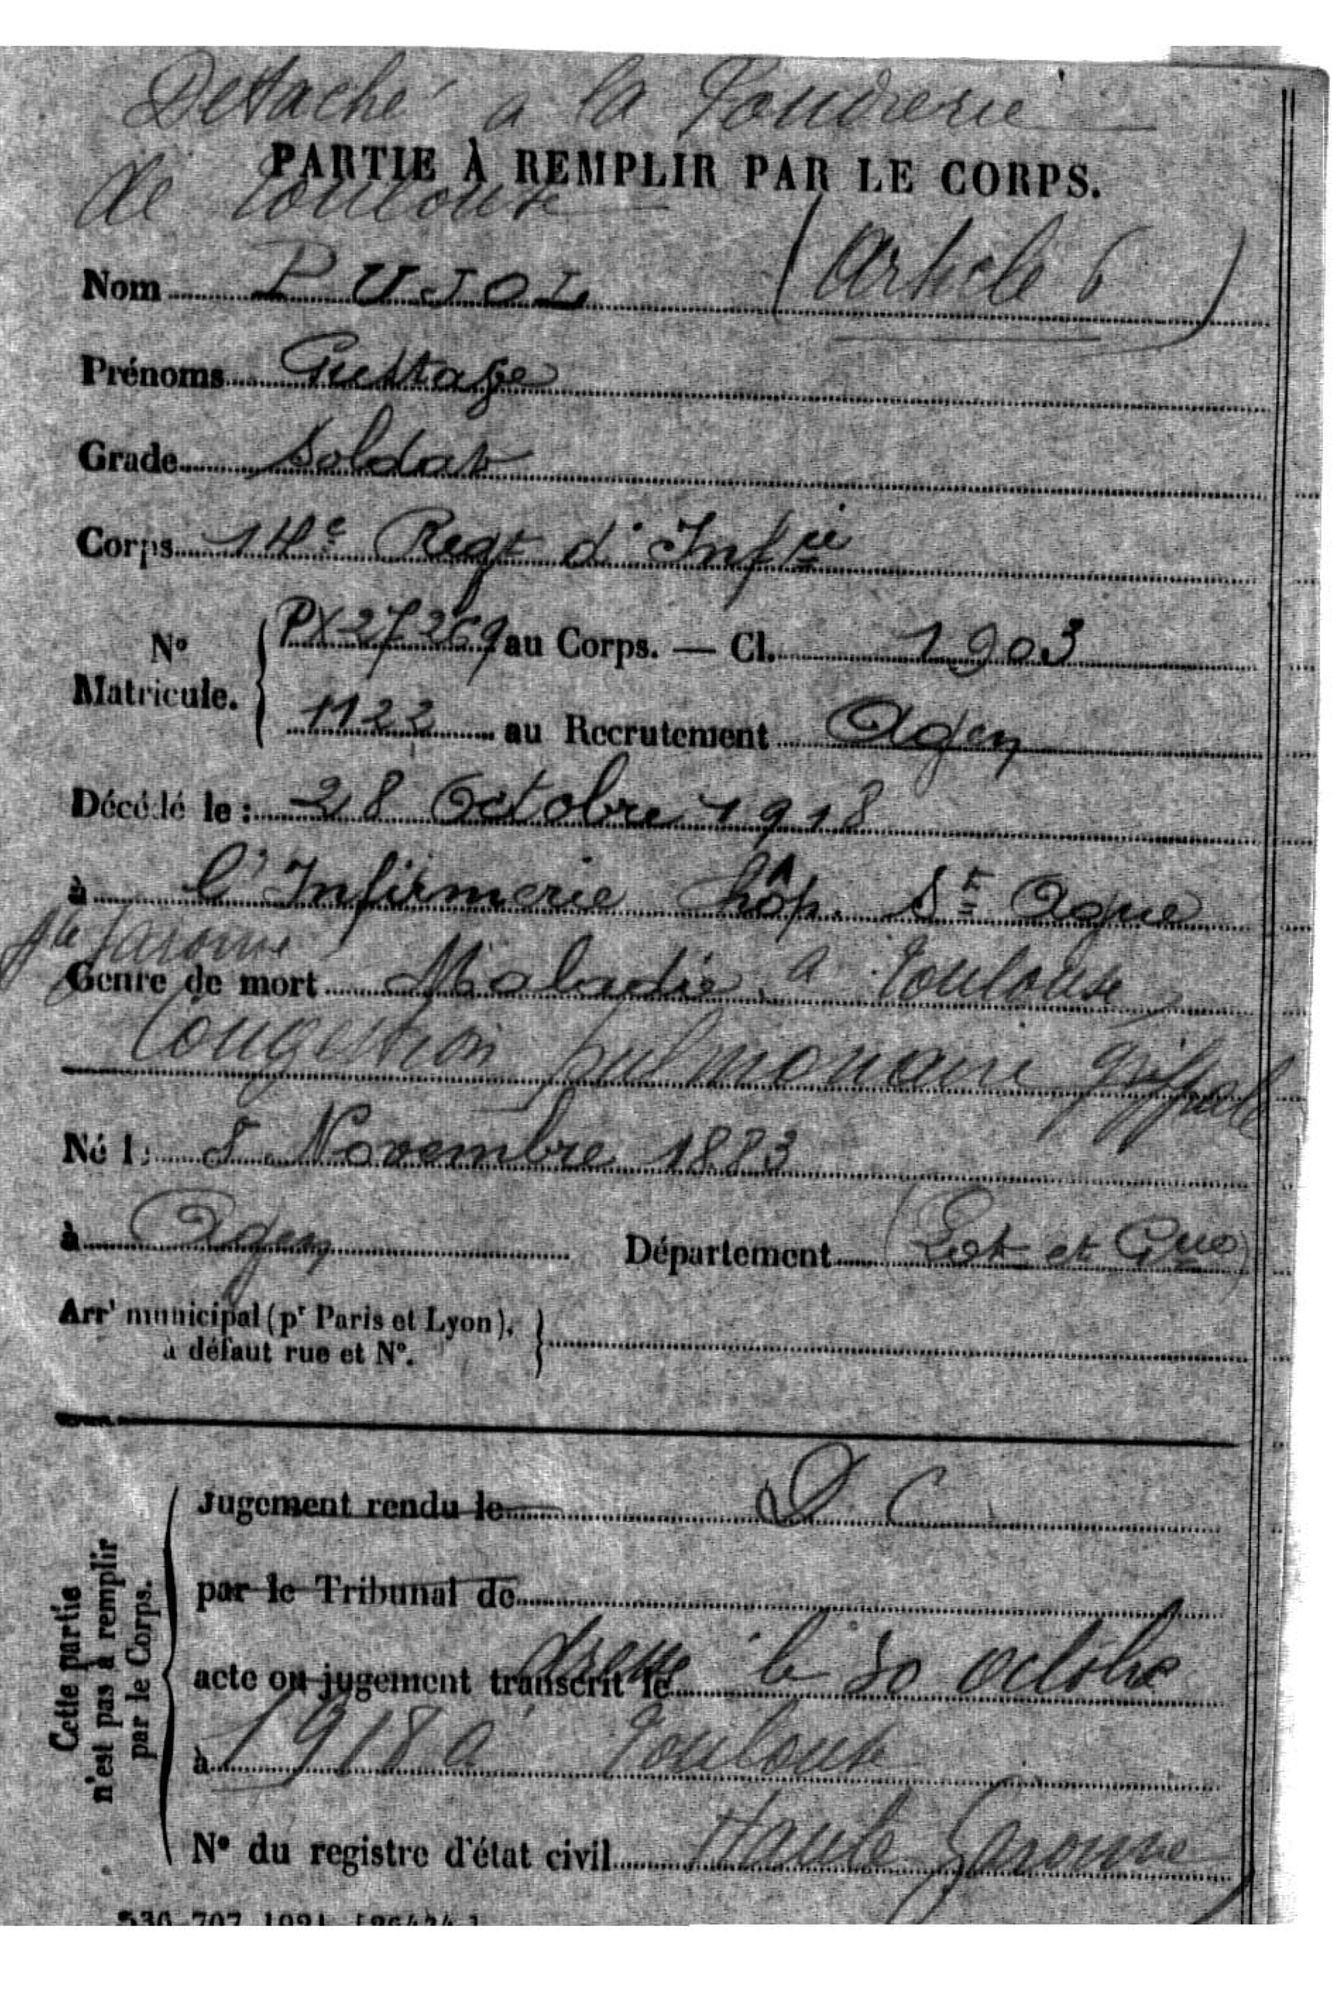 Détaché à la Poudrerie
PARTIE À REMPLIR PAR LE CORPS.
de Toulouse
(Article 6)
Nom PUJOL
Prénoms Gustave
Grade Soldat
Corps 14e Regt d'Infie
No Matricule. { PX 27269 au Corps. — Cl. 1903
1122 au Recrutement Agen
Décédé le : 28 Octobre 1918
à l'Infirmerie hôp. St Agne
Hte Garonne
Genre de mort Maladie à Toulouse
Congestion pulmonaire grippale
Né le 5 Novembre 1883
à Agen Département (Lot et Gne)
Arrt municipal (pr Paris et Lyon), }
à défaut rue et No.
Cette partie
n'est pas à remplir
par le Corps.
Jugement rendu le D C
par le Tribunal de
acte ou jugement transcrit le dressé le 30 octobre
à 1918 à Toulouse
No du registre d'état civil Haute Garonne